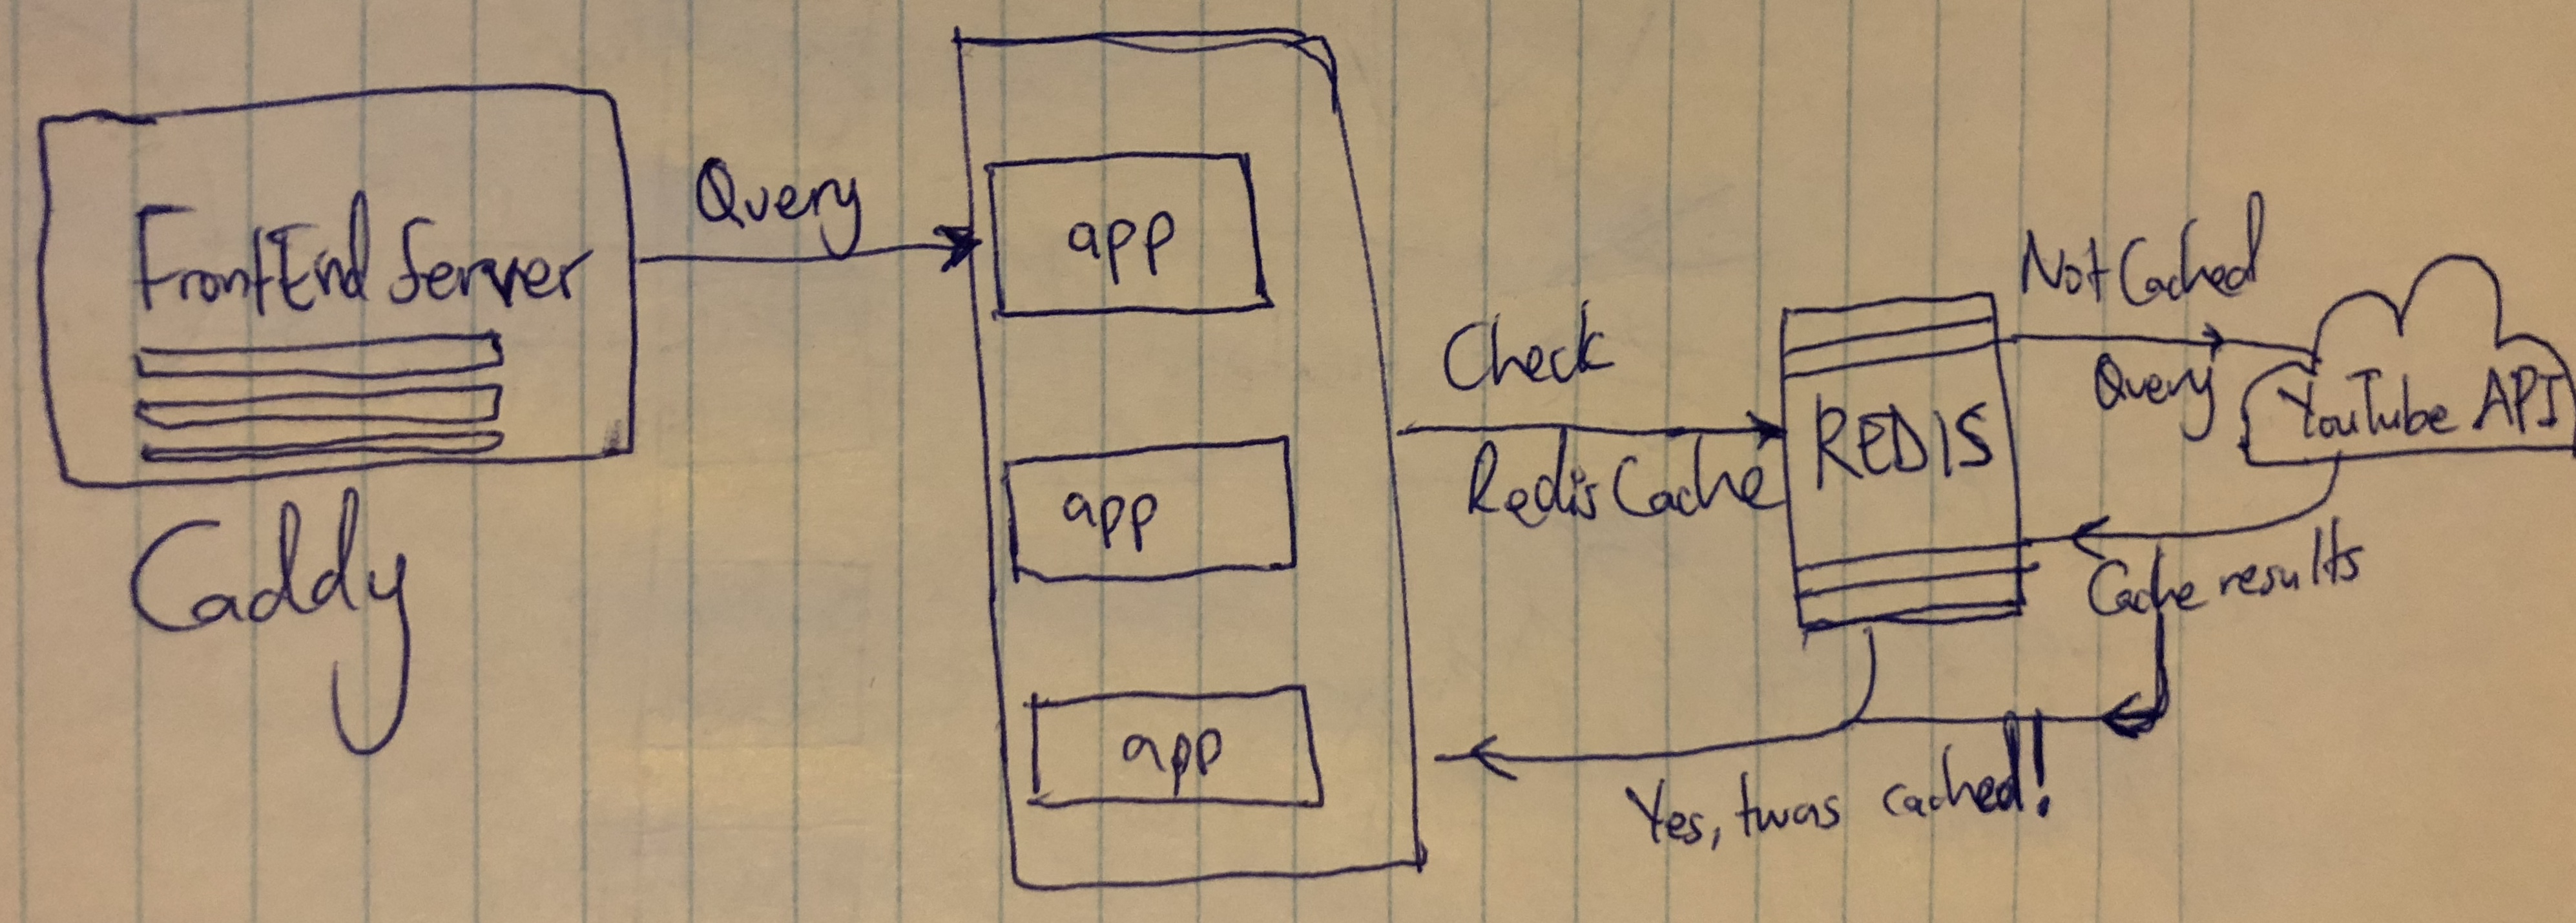 FrontEnd Server
Caddy
Query
app
app
app
Check
Redis Cache
REDIS
Not Cached
Query
YouTube API
Cache results
Yes, twas cached!